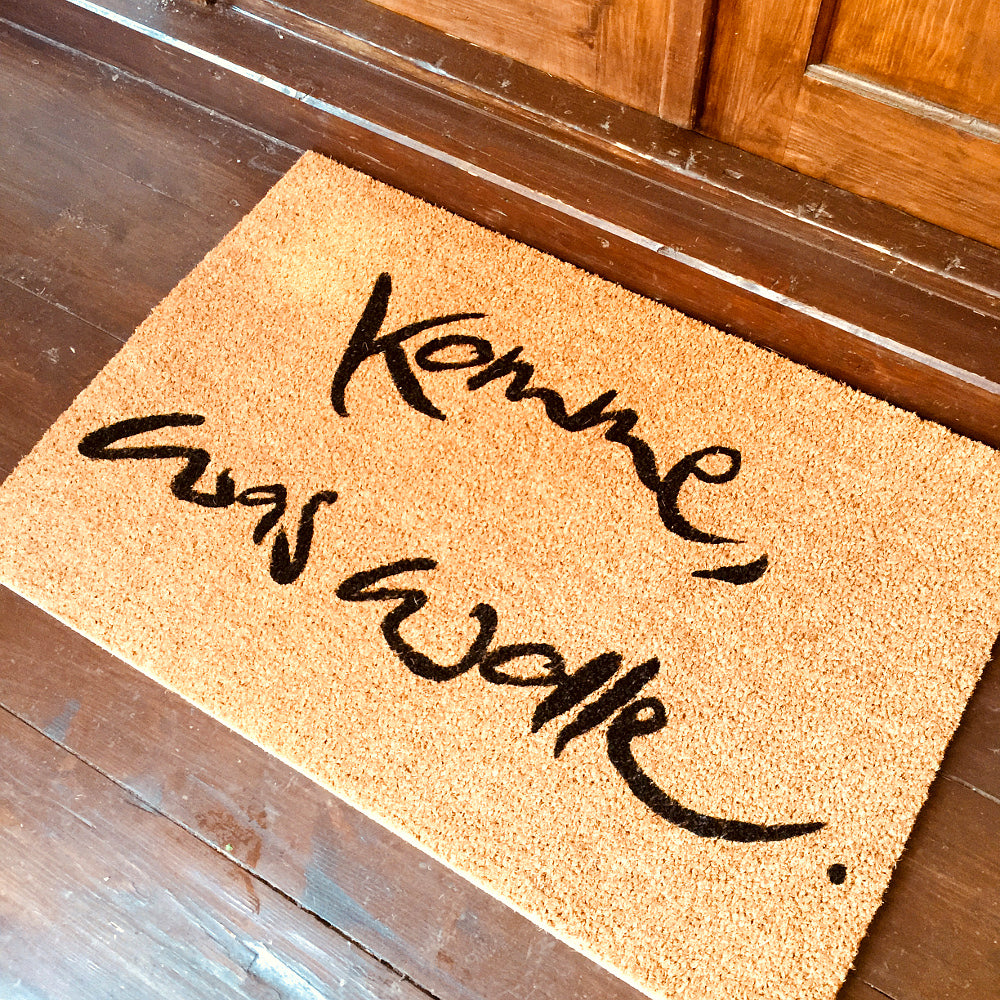 Komme,
was wolle.